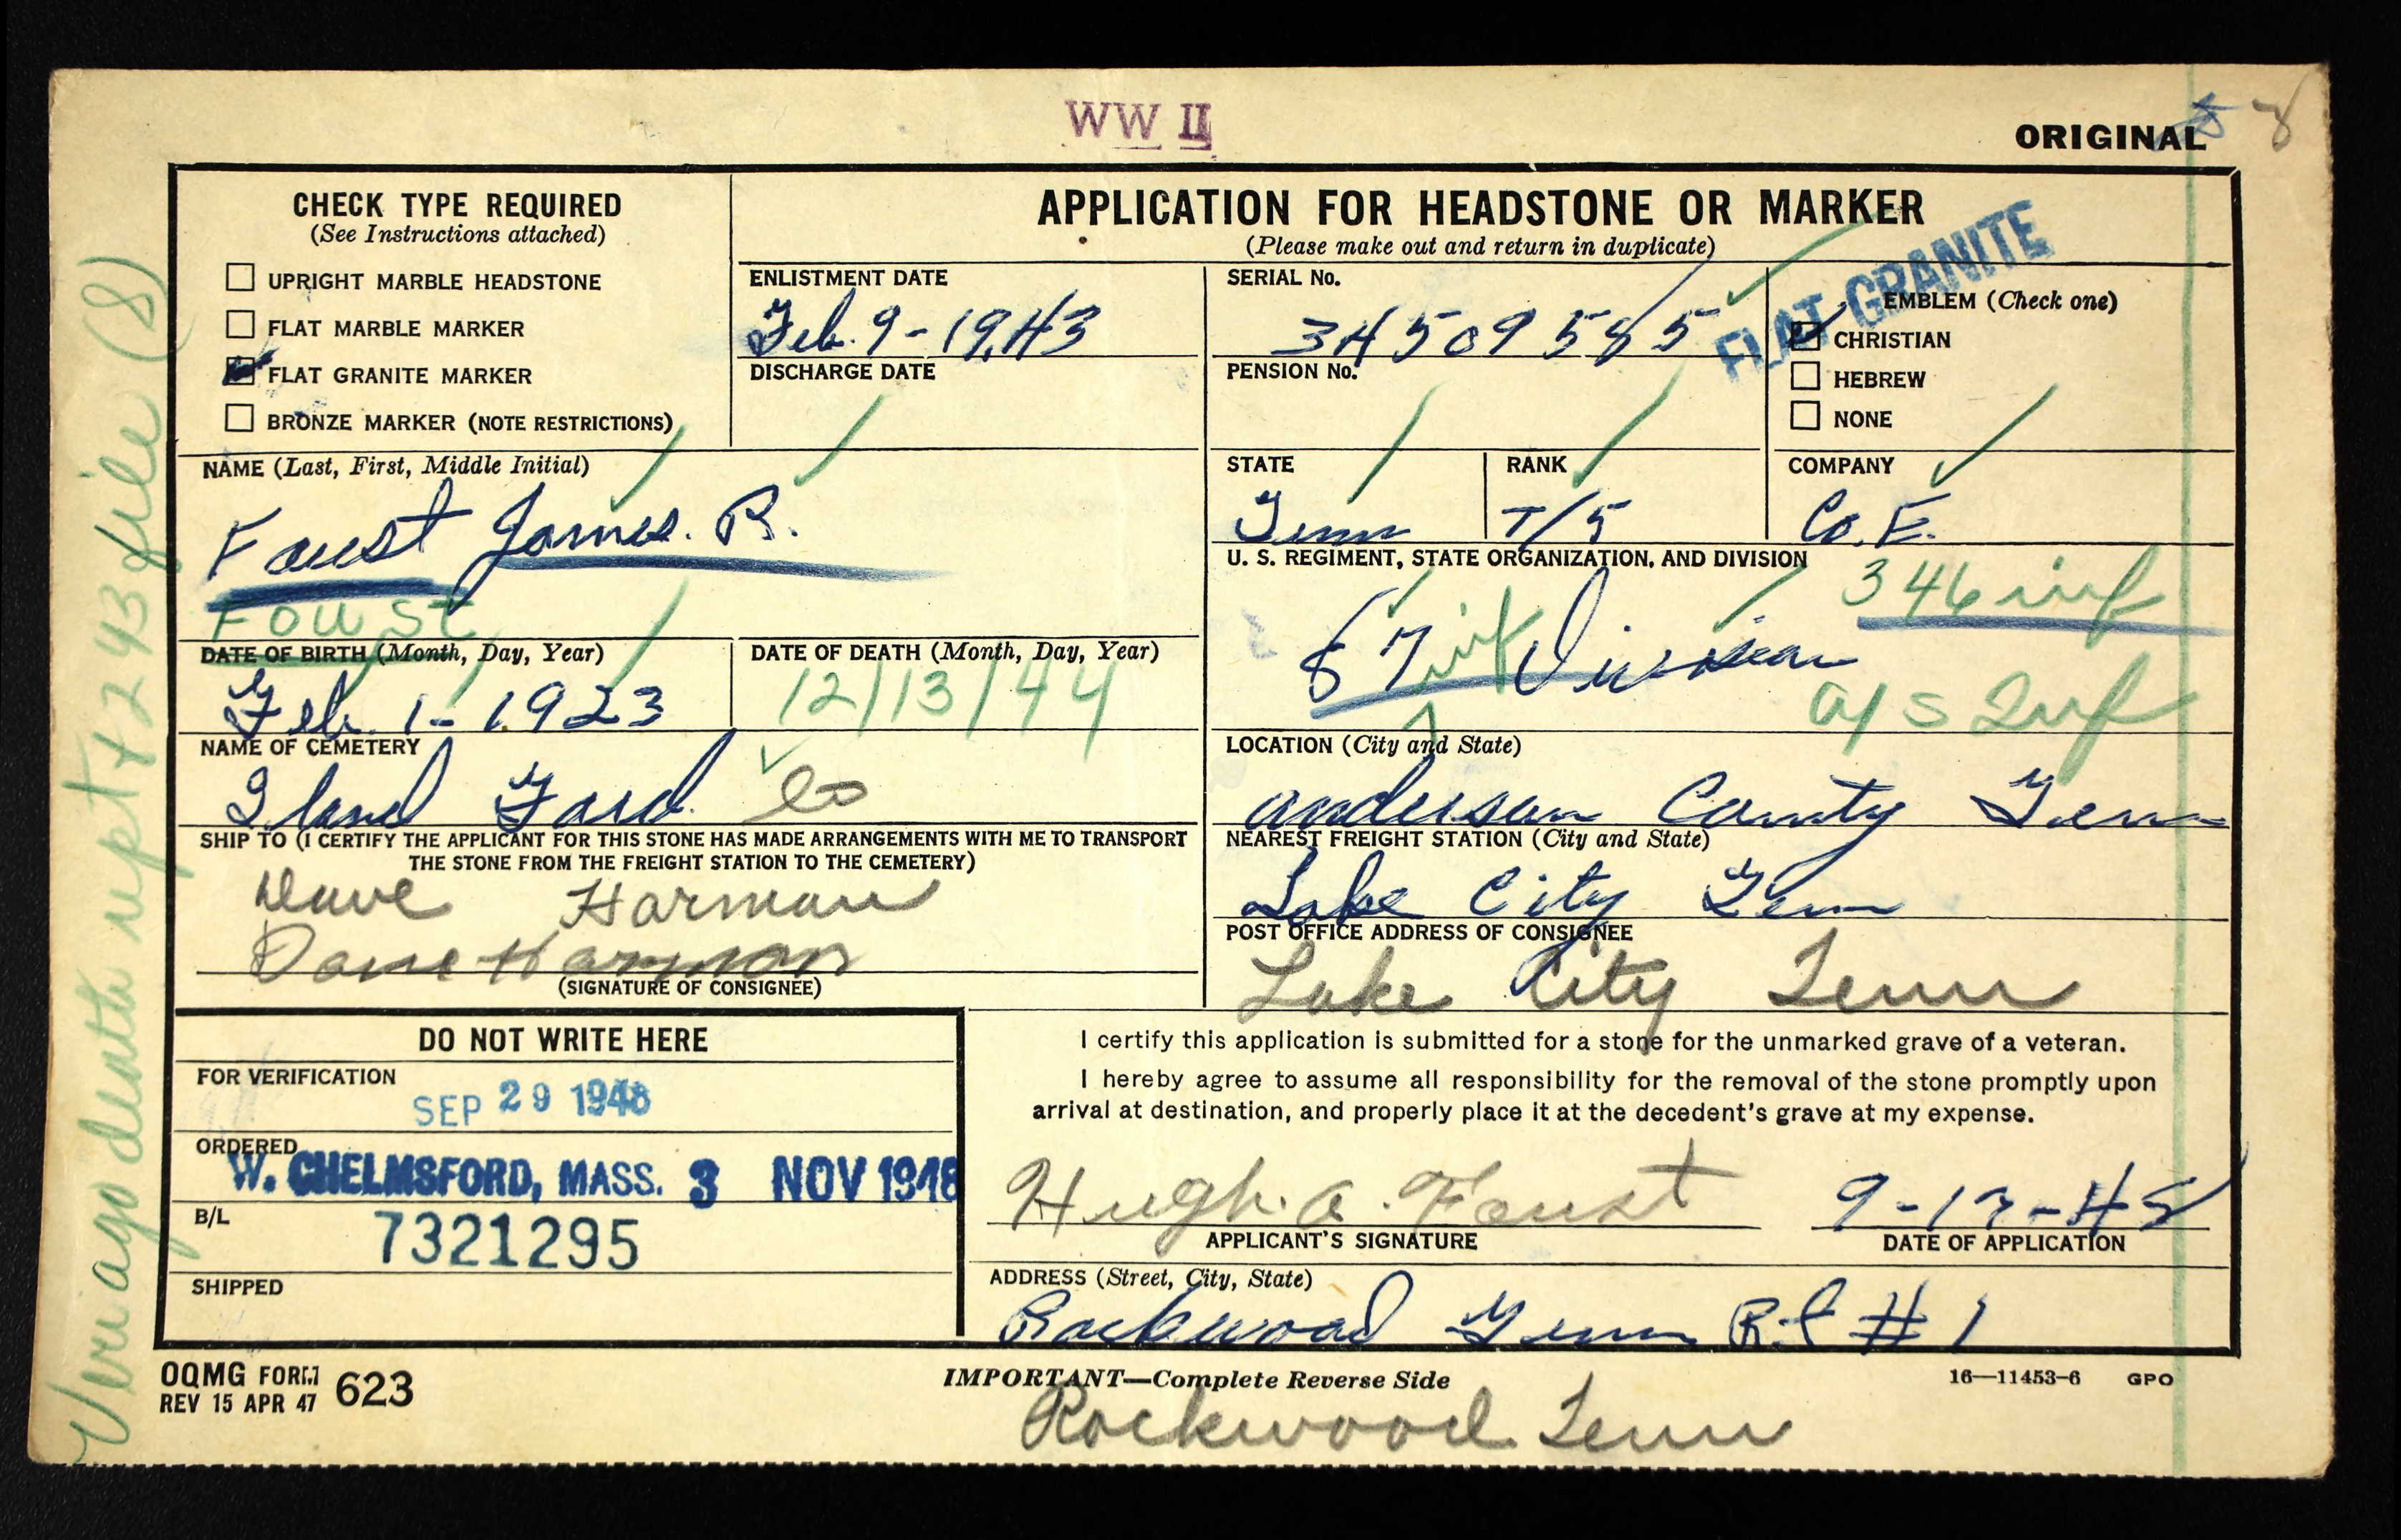 WW II
ORIGINAL
8
CHECK TYPE REQUIRED
(See Instructions attached)
UPRIGHT MARBLE HEADSTONE
FLAT MARBLE MARKER
FLAT GRANITE MARKER
BRONZE MARKER (NOTE RESTRICTIONS)
APPLICATION FOR HEADSTONE OR MARKER
(Please make out and return in duplicate)
ENLISTMENT DATE
Feb. 9-1943
DISCHARGE DATE
SERIAL No.
34509585
PENSION No.
FLAT GRANITE
EMBLEM (Check one)
CHRISTIAN
HEBREW
NONE
NAME (Last, First, Middle Initial)
Foust James. R.
Foust
STATE
Tenn
RANK
T/5
COMPANY
Co. E.
U. S. REGIMENT, STATE ORGANIZATION, AND DIVISION
346 inf
87 inf Division
a/s Inf
DATE OF BIRTH (Month, Day, Year)
Feb. 1-1923
DATE OF DEATH (Month, Day, Year)
12/13/44
NAME OF CEMETERY
Iland Ford.
LOCATION (City and State)
Anderson County Tenn
SHIP TO (I CERTIFY THE APPLICANT FOR THIS STONE HAS MADE ARRANGEMENTS WITH ME TO TRANSPORT
THE STONE FROM THE FREIGHT STATION TO THE CEMETERY)
Dave Harman
Dave Harmon
(SIGNATURE OF CONSIGNEE)
NEAREST FREIGHT STATION (City and State)
Lake City Tenn
POST OFFICE ADDRESS OF CONSIGNEE
Lake City Tenn
DO NOT WRITE HERE
FOR VERIFICATION
SEP 29 1948
ORDERED
W. CHELMSFORD, MASS. 3 NOV 1948
B/L
7321295
SHIPPED
I certify this application is submitted for a stone for the unmarked grave of a veteran.
I hereby agree to assume all responsibility for the removal of the stone promptly upon
arrival at destination, and properly place it at the decedent's grave at my expense.
Hugh. a. Foust
APPLICANT'S SIGNATURE
DATE OF APPLICATION
ADDRESS (Street, City, State)
Rockwood Tenn R.t # 1
OQMG FORM 623
REV 15 APR 47
IMPORTANT—Complete Reverse Side
16—11453-6 GPO
Rockwood Tenn
Veri ago death rept + 293 file (8)